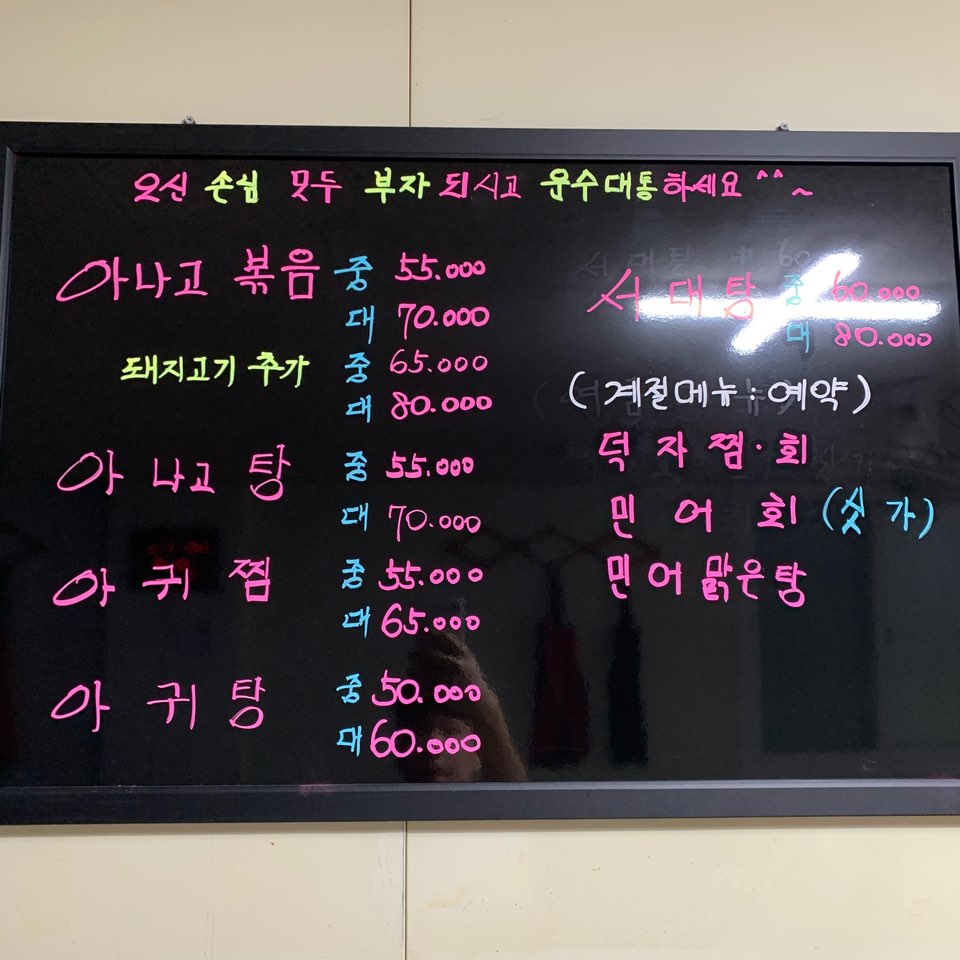 오신 손님 못두 부자 되시고 운수대통하세요 ^^~
아나고 볶음 중 55.000
대 70.000
돼지고기 추가 중 65.000
대 80.000
아나고탕 중 55.000
대 70.000
아귀찜 중 55.000
대 65.000
아귀탕 중 50.000
대 60.000
서대탕 중 60.000
대 80.000
(계절메뉴:예약)
덕자찜·회
민어회 (싯가)
민어맑은탕